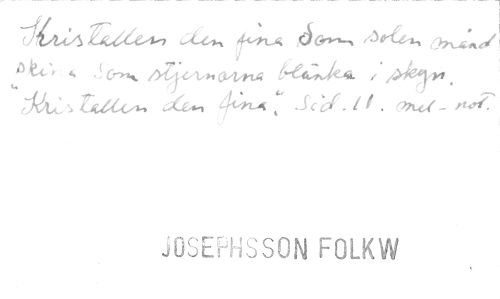 Kristallen den fina Som solen månd
skina Som stjernorna blänka i skyn.
"Kristallen den fina", Sid. 11. mel-not.
JOSEPHSSON FOLKW